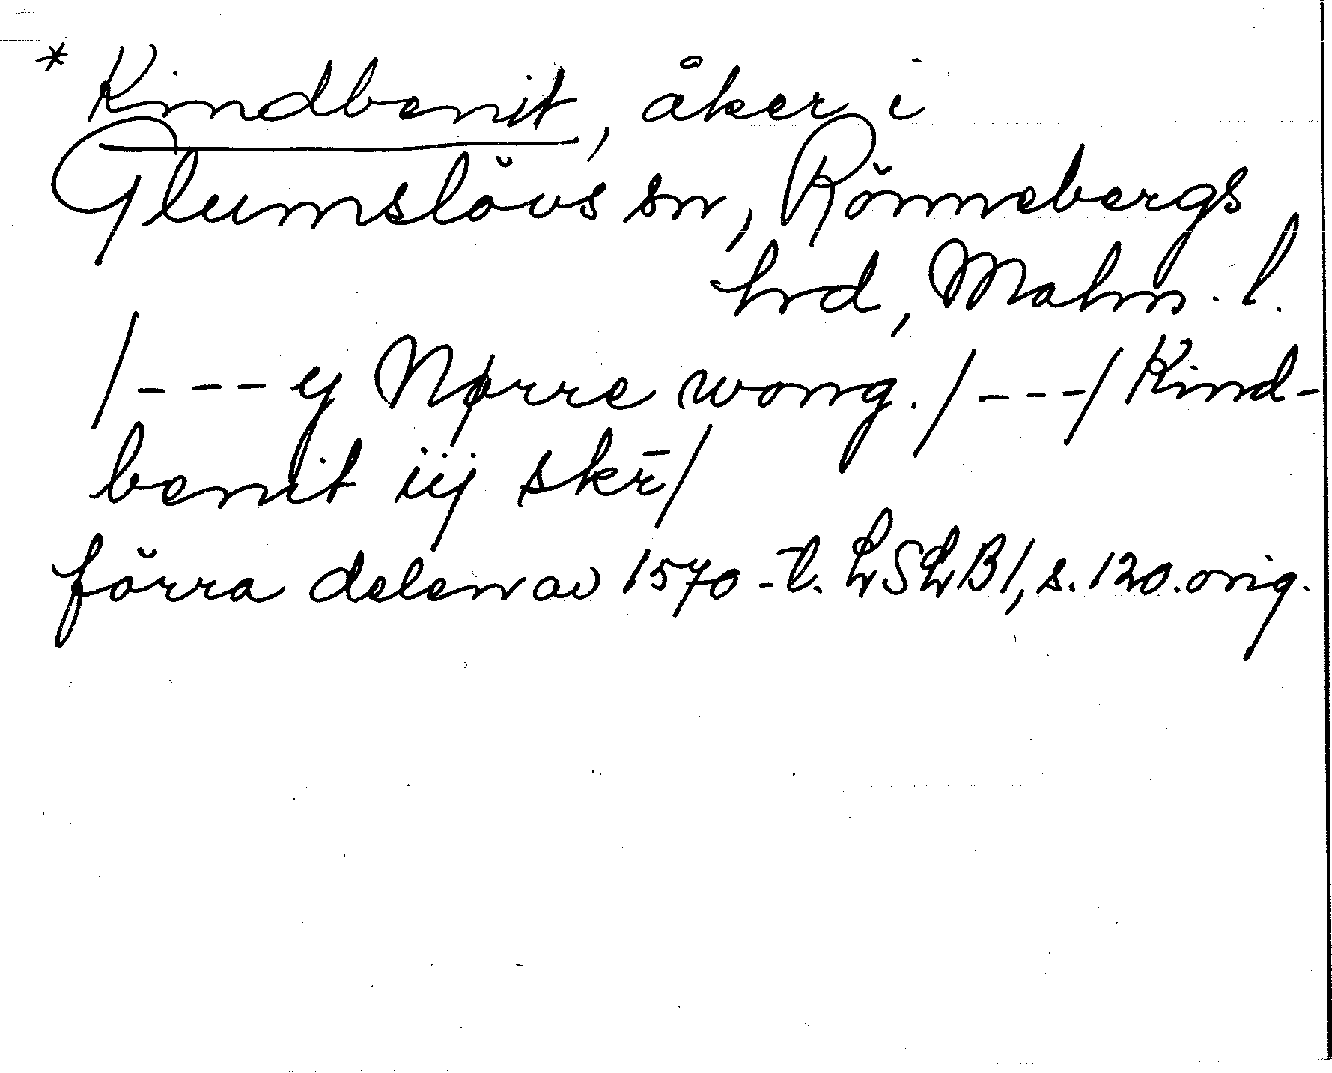 * Kindbenit, åker i
Glumslövs sn, Rönnebergs
hrd, Malm. l.
/---y Nørre wong./---/Kind-
benit iij skr̄/
förra delen av 1570-t. LSLB1, s. 120. orig.